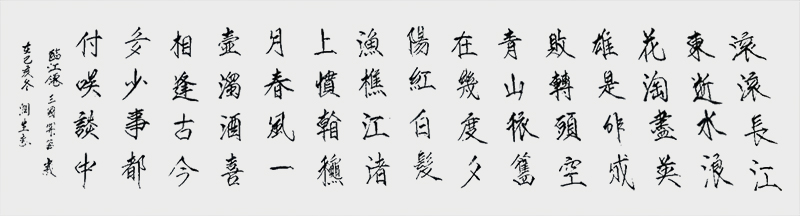 滚滚長江
東逝水浪
花淘盡英
雄是非成
敗轉頭空
青山依舊
在幾度夕
陽紅白髮
漁樵江渚
上慣穐
月春風一
壺濁酒喜
相逢古今
多少事都
付咲談中
臨江仙 三國
在己亥冬